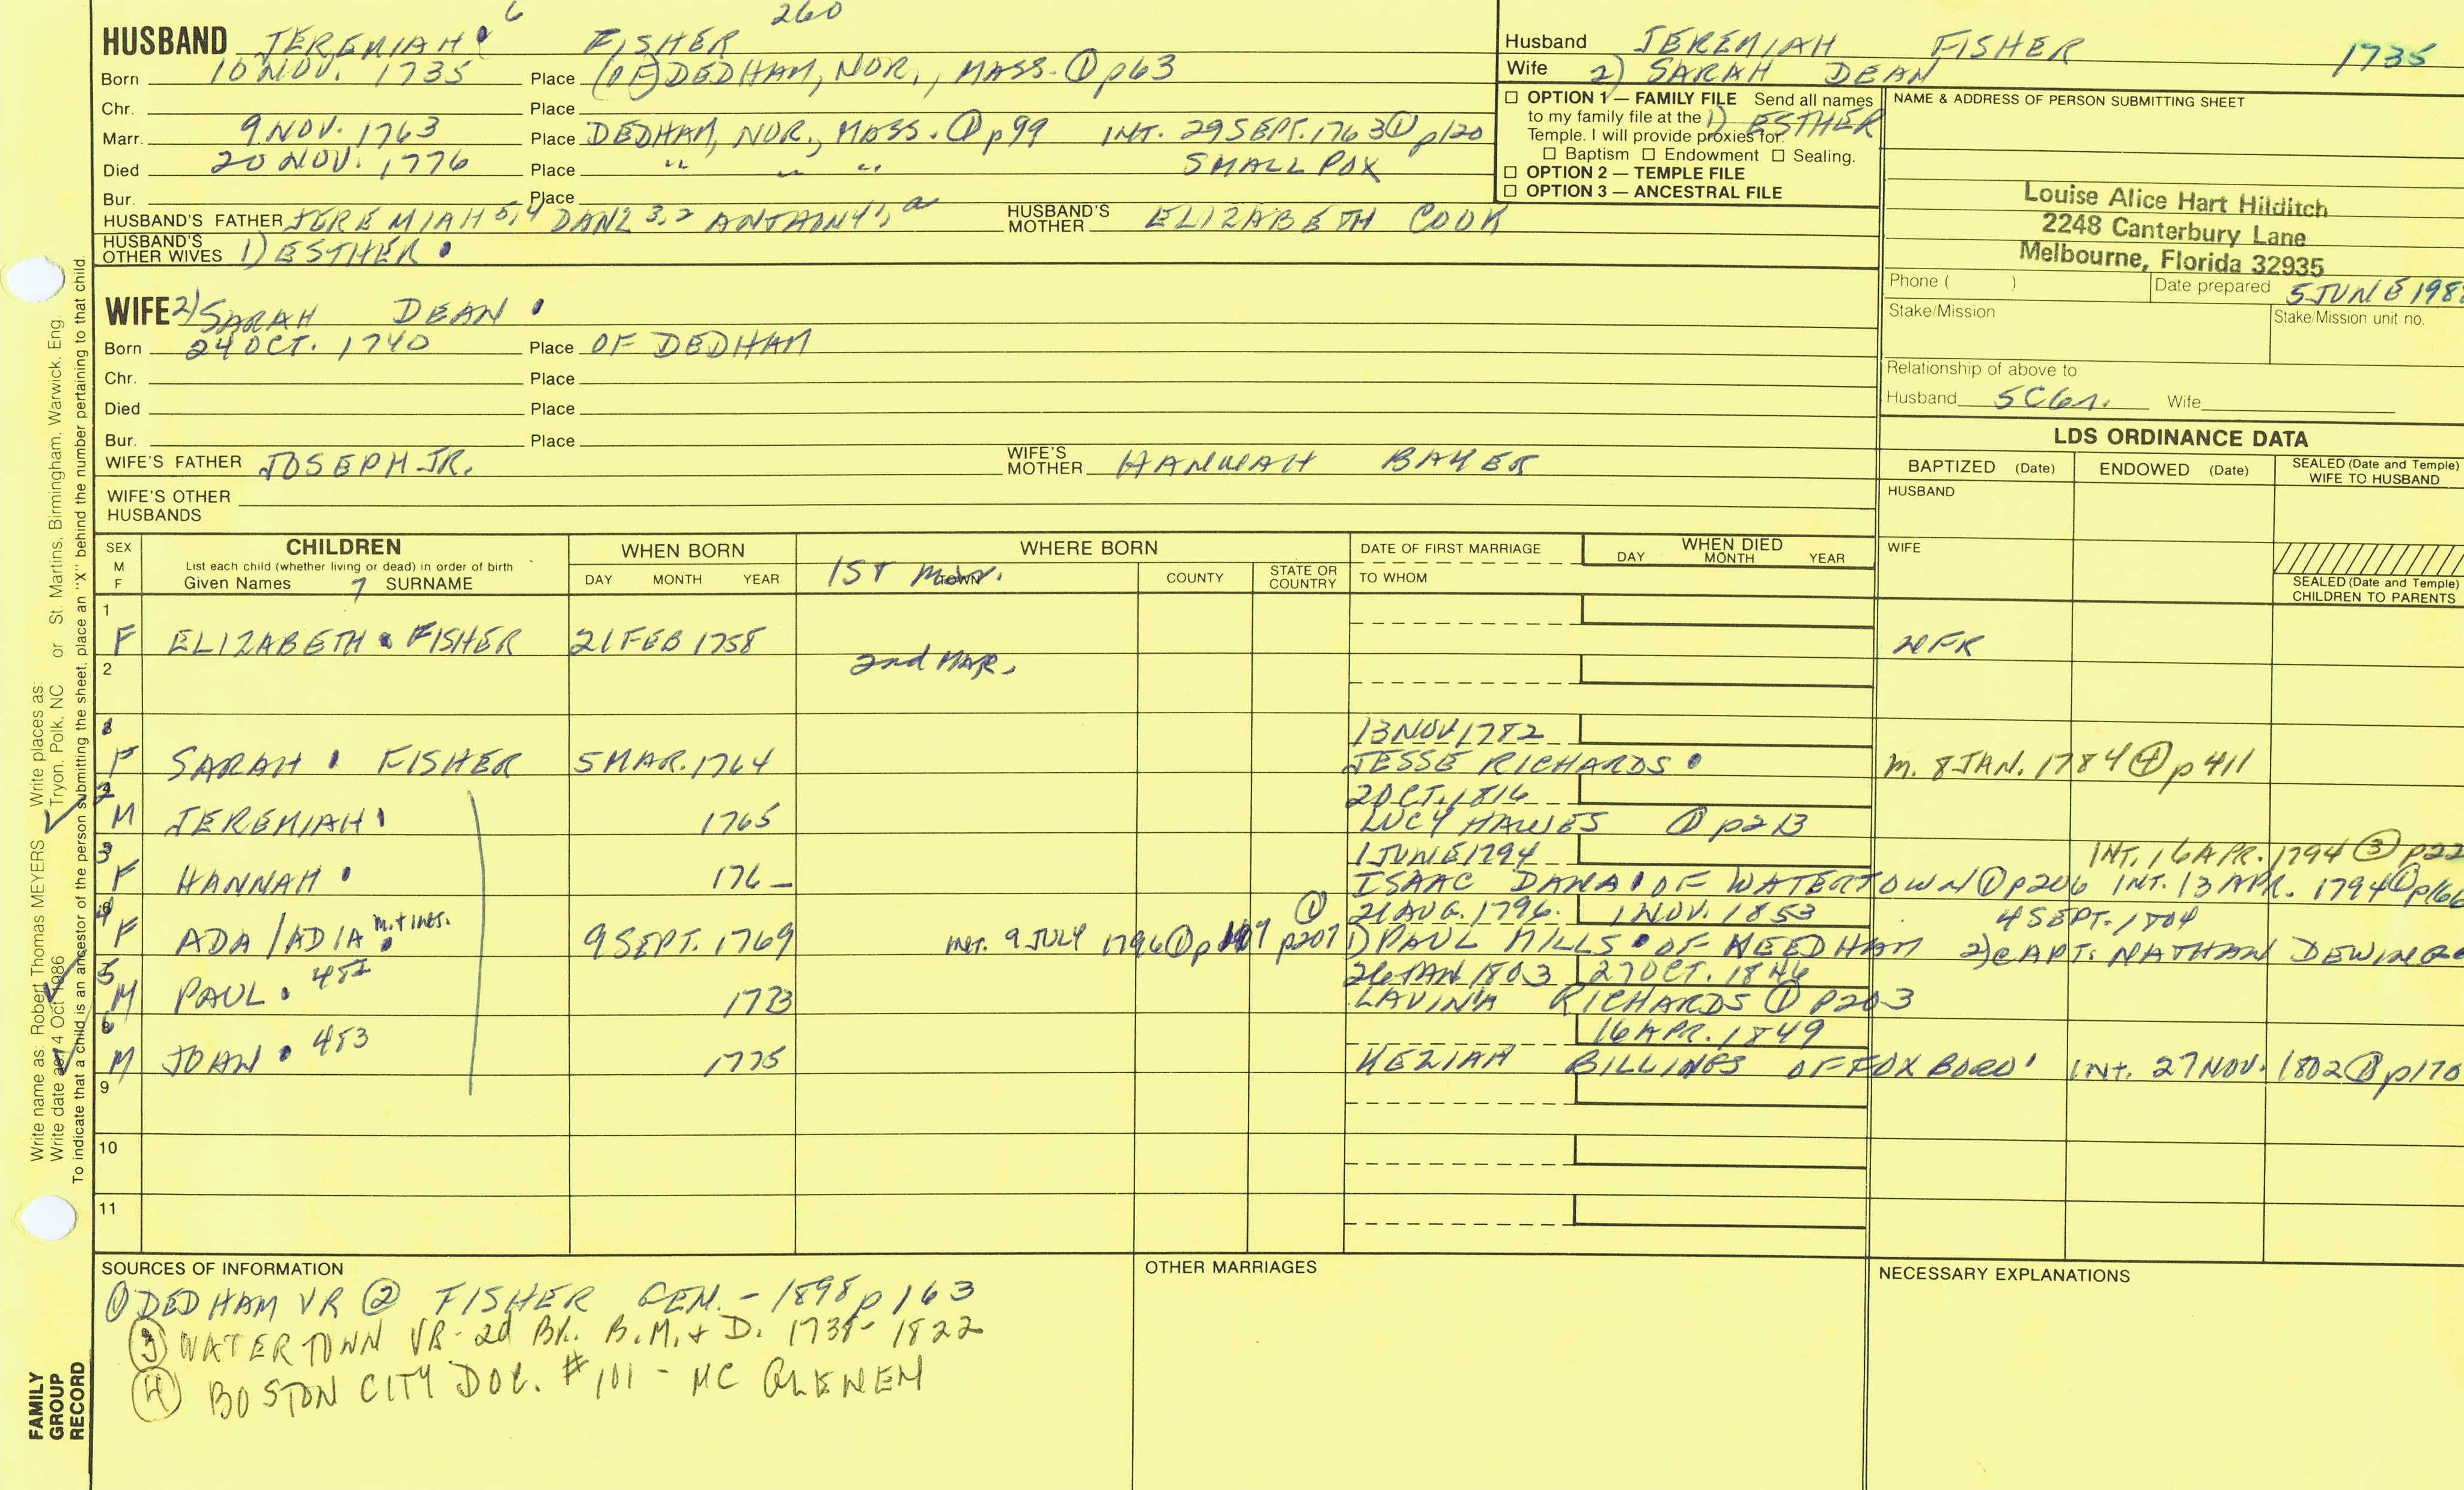 6 260
HUSBAND JEREMIAH FISHER
Born 10 NOV. 1735 Place (OF) DEDHAM, NOR., MASS. ① p63
Chr. Place
Marr. 9 NOV. 1763 Place DEDHAM, NOR., MASS. ① p99 INT. 29 SEPT. 1763 ① p120
Died 20 NOV. 1776 Place " " " SMALL POX
Bur. Place
HUSBAND'S FATHER JEREMIAH 5,4 DANL 3,2 ANTHONY 1, a HUSBAND'S MOTHER ELIZABETH COOK
HUSBAND'S OTHER WIVES 1) ESTHER
WIFE 2) SARAH DEAN
Born 24 OCT. 1740 Place OF DEDHAM
Chr. Place
Died Place
Bur. Place
WIFE'S FATHER JOSEPH JR. WIFE'S MOTHER HANNAH
WIFE'S OTHER HUSBANDS
Husband JEREMIAH FISHER 1735
Wife 2) SARAH DEAN
1) ESTHER
□ OPTION 1 — FAMILY FILE Send all names
to my family file at the
Temple. I will provide proxies for:
□ Baptism □ Endowment □ Sealing.
□ OPTION 2 — TEMPLE FILE
□ OPTION 3 — ANCESTRAL FILE
NAME & ADDRESS OF PERSON SUBMITTING SHEET
Louise Alice Hart Hilditch
2248 Canterbury Lane
Melbourne, Florida 32935
Phone ( ) Date prepared 5 JUNE 198
Stake/Mission Stake/Mission unit no.
Relationship of above to
Husband 5C6r. Wife
LDS ORDINANCE DATA
BAPTIZED (Date) ENDOWED (Date) SEALED (Date and Temple) WIFE TO HUSBAND
HUSBAND
WIFE
SEALED (Date and Temple) CHILDREN TO PARENTS
SEX M F
CHILDREN
List each child (whether living or dead) in order of birth
Given Names 7 SURNAME
WHEN BORN
DAY MONTH YEAR
WHERE BORN
1ST Mar. TOWN COUNTY STATE OR COUNTRY
DATE OF FIRST MARRIAGE
TO WHOM
WHEN DIED
DAY MONTH YEAR
1
F ELIZABETH FISHER 21 FEB 1758 NFR
2 2nd MAR.
13 NOV 1782
F SARAH FISHER 5 MAR. 1764 JESSE RICHARDS m. 8 JAN. 1784 ④ p 411
2 2 OCT. 1816
M JEREMIAH 1765 LUCY HAWES ① p213
3 1 JUNE 1794 INT. 16 APR. 1794 ③ p22
F HANNAH 176_ ISAAC DANA OF WATERTOWN ① p206 INT. 13 APR. 1794 ① p166
4 ① 21 AUG. 1796 1 NOV. 1853 4 SEPT. 1804
F ADA/ADIA m. + int. 9 SEPT. 1769 INT. 9 JULY 1796 ① p p207 1) PAUL MILLS OF NEEDHAM 2) CAPT. NATHAN DEWING
5 26 JAN 1803 27 OCT. 1846
M PAUL 452 1773 LAVINIA RICHARDS ① p203
6 16 APR. 1849
M JOHN 453 1775 KEZIAH BILLINGS OF FOXBORO' INT. 27 NOV. 1802 ① p170
9
10
11
SOURCES OF INFORMATION
① DEDHAM VR ② FISHER GEN. - 1898 p 163
③ WATERTOWN VR - 2d BK. B. M. + D. 1738-1822
④ BOSTON CITY DOC. #101 - MC GLENEN
OTHER MARRIAGES
NECESSARY EXPLANATIONS
Write name as: Robert Thomas MEYERS Write places as:
Write date as: 4 Oct 1986 Tryon, Polk, NC or St. Martins, Birmingham, Warwick, Eng.
To indicate that a child is an ancestor of the person submitting the sheet, place an "X" behind the number pertaining to that child.
FAMILY
GROUP
RECORD